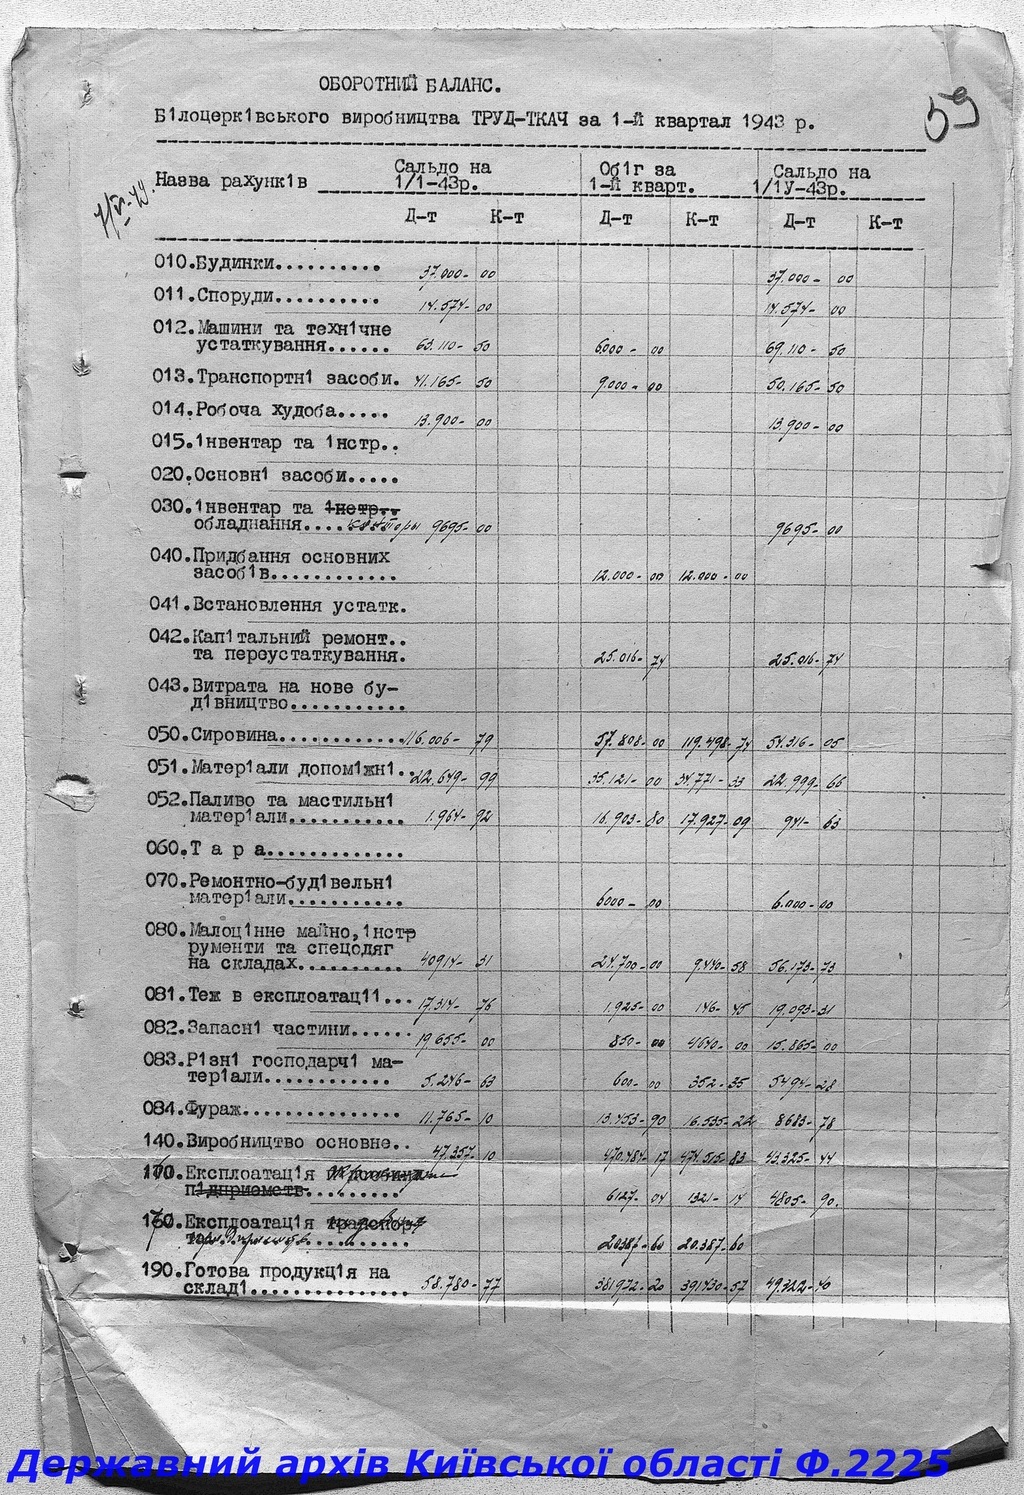 59
ОБОРОТНИЙ БАЛАНС.
Б1лоцерк1вського виробництва ТРУД-ТКАЧ за 1-й квартал 1943 р.
Назва рахунк1в Сальдо на 1/1-43р. Об1г за 1-й кварт. Сальдо на 1/1У-43р.
Д-т К-т Д-т К-т Д-т К-т
010.Будинки.......... 37.000- 00 37.000- 00
011.Споруди.......... 14.574- 00 14.574- 00
012.Машини та техн1чне
устаткування...... 63.110- 50 6.000- 00 69.110- 50
013.Транспортн1 засоби. 41.165- 50 9.000- 00 50.165- 50
014.Робоча худоба..... 13.900- 00 13.900- 00
015.1нвентар та 1нстр..
020.Основн1 засоби.....
030.1нвентар та 1нстр..
обладнання.... конторы 9695- 00 9695- 00
040.Придбання основних
засоб1в............ 12.000- 00 12.000- 00
041.Встановлення устатк.
042.Кап1тальний ремонт..
та переустаткування. 25.016- 74 25.016- 74
043.Витрата на нове бу-
д1вництво...........
050.Сировина............ 116.006- 79 57.808- 00 119.498- 74 54.316- 05
051.Матер1али допом1жн1.. 22.649- 99 35.121- 00 34.771- 33 22.999- 66
052.Паливо та мастильн1
матер1али........... 1.964- 92 16.903- 80 17.927- 09 941- 63
060.Т а р а.............
070.Ремонтно-буд1вельн1
матер1али........... 6000- 00 6.000- 00
080.Малоц1нне майно,1нстр
рументи та спецодяг
на складах.......... 40914- 31 24.700- 00 9.440- 58 56.173- 73
081.Теж в експлоатац11... 17.314- 76 1.925- 00 146- 45 19.093- 31
082.Запасн1 частини...... 19.655- 00 850- 00 4640- 00 15.865- 00
083.Р1зн1 господарч1 ма-
тер1али............ 5.246- 63 600- 00 352- 35 5494- 28
084.Фураж............... 11.765- 10 13.453- 90 16.535- 22 8683- 78
140.Виробництво основне.. 47.357- 10 470.484- 17 474.515- 83 43.325- 44
170.Експлоатац1я
п1дприємств......... 6127- 04 1321- 14 4805- 90.
160.Експлоатац1я транспорт
та 20387- 60 20.387- 60
190.Готова продукц1я на
склад1............... 58.780- 77 381972- 20 391430- 57 49.322- 40
Державний архів Київської області Ф.2225